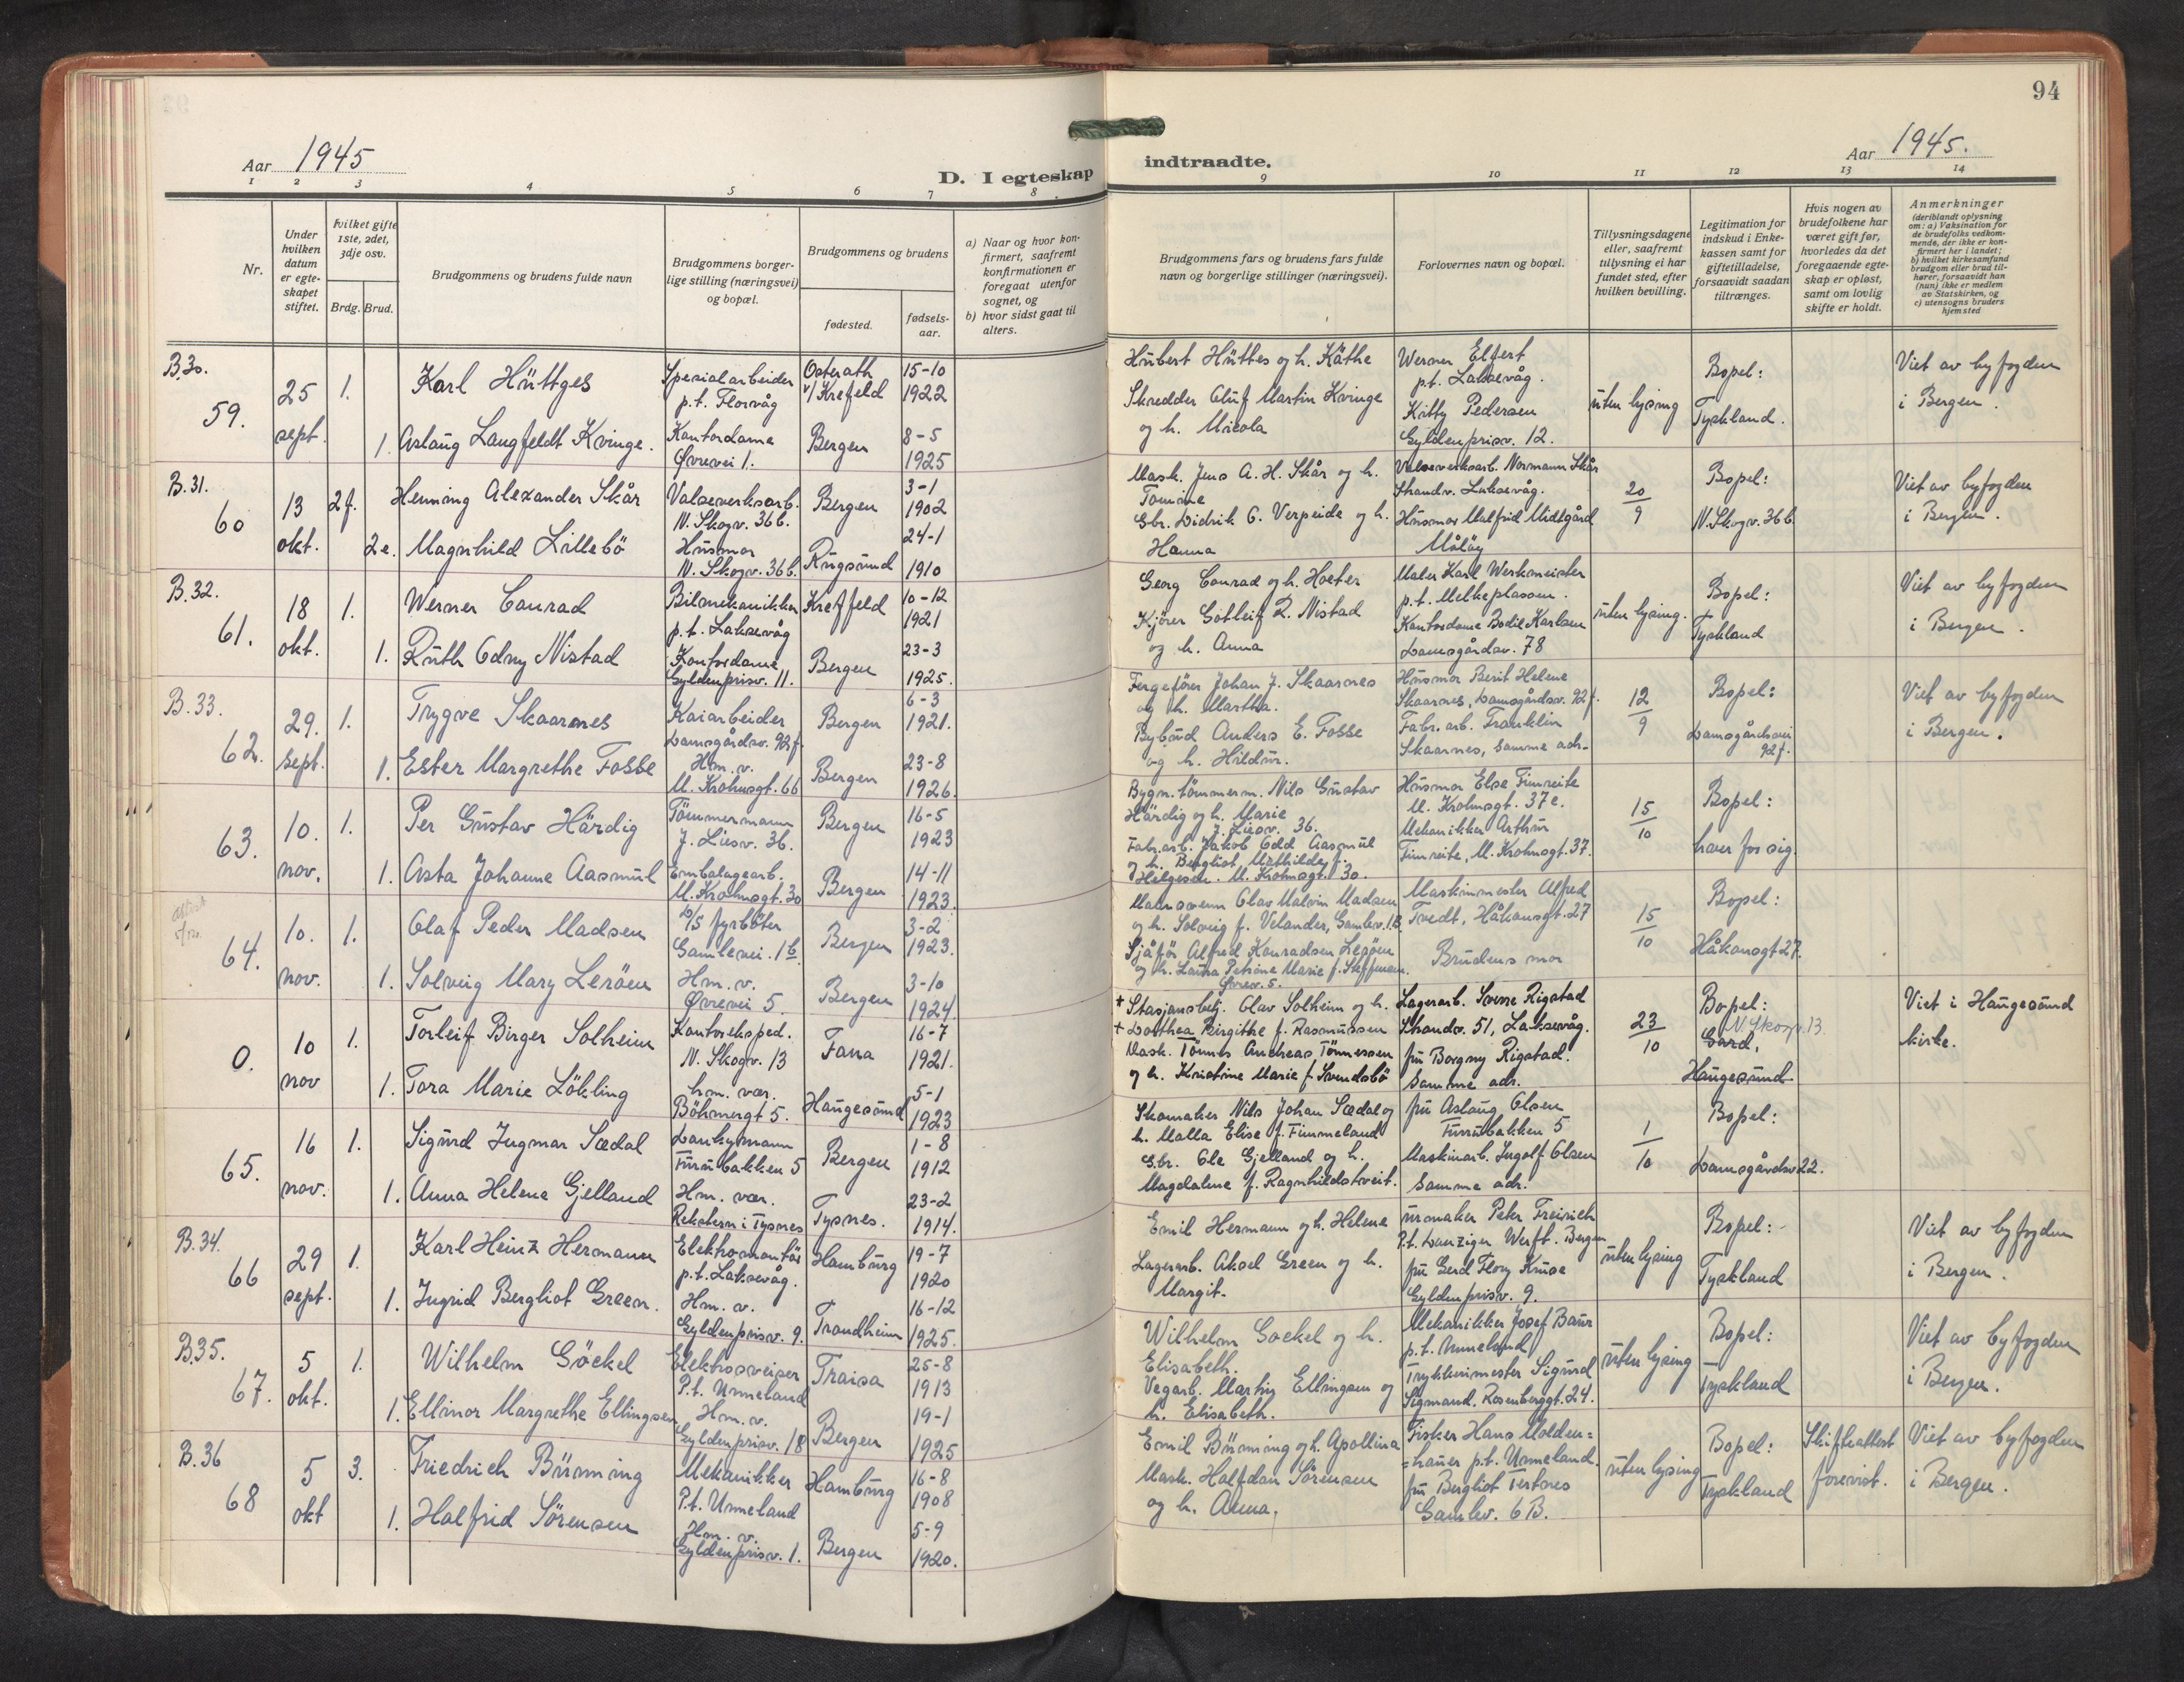 94
Aar 1945
D. I egteskap indtraadte.
Aar 1945.
1 2 3 4 5 6 7 8 9 10 11 12 13 14
Nr.
Under hvilken datum er egteskapet stiftet.
hvilket gifte 1ste, 2det, 3dje osv.
Brdg. Brud.
Brudgommens og brudens fulde navn
Brudgommens borgerlige stilling (næringsvei) og bopæl.
Brudgommens og brudens
fødested.
fødselsaar.
a) Naar og hvor konfirmert, saafremt konfirmationen er foregaat utenfor sognet, og
b) hvor sidst gaat til alters.
Brudgommens fars og brudens fars fulde navn og borgerlige stillinger (næringsvei).
Forlovernes navn og bopæl.
Tillysningsdagene eller, saafremt tillysning ei har fundet sted, efter hvilken bevilling.
Legitimation for indskud i Enkekassen samt for giftetilladelse, forsaavidt saadan tiltrænges.
Hvis nogen av brudefolkene har været gift før, hvorledes da det foregaaende egteskap er opløst, samt om lovlig skifte er holdt.
Anmerkninger
(deriblandt oplysning om: a) Vaksination for de brudefolks vedkommende, der ikke er konfirmert her i landet; b) hvilket kirkesamfund brudgom eller brud tilhører, forsaavidt han (hun) ikke er medlem av Statskirken, og c) utensogns bruders hjemsted
B.30.
59.
25 sept.
1.
Karl Hüttges
Spesialarbeider p.t. Florvåg
Osterath v/Krefeld
15-10 1922
1. Aslaug Langfeldt Kvinge.
Kontordame Øvrevei 1.
Bergen
8-5 1925
Hubert Hüttes og h. Käthe
Skredder Oluf Martin Kvinge og h. Nicola
Werner Elfert p.t. Laksevåg.
Kitty Pedersen Gyldenprisv. 12.
uten lysing
Bopel: Tyskland.
Viet av byfogden i Bergen.
B.31.
60
13 okt.
2f.
Henning Alexander Skår
Valseverksarb. N. Skogv. 36b.
Bergen
3-1 1902
2e. Magnhild Lillebö
Husmor N. Skogv. 36b.
Rugsund
24-1 1910
Mask. Jens A. H. Skår og h. Tomine
Gbr. Didrik C. Verpeide og h. Hanna
Valseverksarb. Normann Skår Strandv. Laksevåg.
Husmor Malfrid Midtgård Måløy
20/9
Bopel: N. Skogv. 36b.
Viet av byfogden i Bergen.
B.32.
61.
18 okt.
1.
Werner Conrad
Bilmekanikker p.t. Laksevåg
Krefeld
10-12 1921
1. Ruth Odny Nistad
Kontordame Gyldenprisv. 11.
Bergen
23-3 1925.
Georg Conrad og h.
Kjører Gotleif R. Nistad og h. Anna
Maler Karl Werkmeister p.t. Melkeplassen.
Kontordame Bodil Karlsen Damsgårdsv. 78
uten lysing.
Bopel: Tyskland
Viet av byfogden i Bergen.
B.33.
62.
29. sept.
1.
Trygve Skaarnes
Kaiarbeider Damsgårdsv. 92f.
Bergen
6-3 1921.
1. Ester Margrethe Fosse
Hm. v. M. Krohnsgt. 66
Bergen
23-8 1926.
Fergefører Johan J. Skaarnes og h. Martha.
Bybud Anders E. Fosse og h. Hildur.
Husmor Berit Helene Skaarnes, Damsgårdsv. 92f.
Fabr. arb. Franklin Skaarnes, samme adr.
12/9
Bopel: Damsgårdsvei 92f.
Viet av byfogden i Bergen.
63.
10. nov.
1.
Per Gustav Härdig
Tömmermann J. Liesv. 36.
Bergen
16-5 1923
1. Asta Johanne Aasmul
Embalagearb. M. Krohnsgt. 30
Bergen
14-11 1923.
Bygn. tömmerm. Nils Gustav Härdig og h. Marie J. Liesv. 36.
Fabr. arb. Jakob Odd Aasmul og h. Bergliot Mathilde f. Helgesen. M. Krohnsgt. 30.
Husmor Else Fimreite M. Krohnsgt. 37c.
Mekanikker Arthur Fimreite, M. Krohnsgt. 37.
15/10
Bopel: hver for sig.
64.
10. nov.
1.
Olaf Peder Madsen
D/S fyrböter Gamlevei. 1b.
Bergen
3-2 1923.
1. Solveig Mary Leröen
Hm. v. Øvrevei 5.
Bergen
3-10 1924.
Matrosvenn Olav Malvin Madsen og h. Solveig f. Velander, Gamlev. 1B.
Sjåfør Alfred Konradsen Leröen og h. Laura Petrine Marie f. Steffensen. Øvrev. 5.
Maskinmester Alfred Tvedt, Håkonsgt. 27
Brudens mor
15/10
Bopel: Håkonsgt 27.
0.
10 nov
1.
Torleif Birger Solheim
Kontoreksped. N. Skogv. 13
Fana
16-7 1921.
1. Tora Marie Lökling
hm. vær. Böhmergt 5.
Haugesund
5-1 1923
+ Stasjonsbetj. Olav Solheim og h.
+ Dorthea Birgithe f. Rasmussen
Mask. Tönnes Andreas Tönnessen og h. Kristine Marie f. Svendsbö
Lagerarb. Sverre Rigstad Strandv. 51, Laksevåg.
fru Borgny Rigstad. samme adr.
23/10
Bopel: N. Skogv. 13. Gard, Haugesund
Viet i Haugesund kirke.
65.
16 nov.
1.
Sigurd Ingmar Sædal
Dankymann Furubakken 5
Bergen
1-8 1912
1. Anna Helene Gjelland
Hm. vær. Reksteren i Tysnes
Tysnes.
23-2 1914.
Skomaker Nils Johan Sædal og h. Malla Elise f. Fimmeland
Gbr. Ole Gjelland og h. Magdalene f. Ragnhildstveit.
fru Aslaug Olsen Furubakken 5
Maskinarb. Ingolf Olsen samme adr.
1/10
Bopel: Damsgårdsv 22.
B.34.
66
29 sept.
1.
Karl Heinz Hermann
Elektromontör p.t. Laksevåg.
Hamburg
19-7 1920
1. Ingrid Bergliot Green.
Hm. v. Gyldenprisv. 9.
Trondheim
16-12 1925.
Emil Hermann og h. Helene
Lagerarb. Aksel Green og h. Margit.
urmaker Peter Freirich P.t. Danziger Werft. Bergen
fru Gerd Flory Knise Gyldenprisv. 9.
uten lysing
Bopel: Tyskland
Viet av byfogden i Bergen.
B.35.
67.
5 okt.
1.
Wilhelm Göckel
Elektrosveiser P.t. Unneland
Traisa
25-8 1913
1. Ellinor Margrethe Ellingsen
Hm. v. Gyldenprisv. 18
Bergen
19-1 1925
Wilhelm Gockel og h. Elisabeth.
Vegarb. Martin Ellingsen og h. Elisabeth.
Mekanikker Josef Baur p.t. Unneland
Trykkerimester Sigurd Sigmand. Rosenberggt. 24.
uten lysing
Bopel: Tyskland
Viet av byfogden i Bergen.
B.36
68
5 okt
3.
Friedrich Bünning
Mekanikker P.t. Unneland
Hamburg
16-8 1908
1. Halfrid Sörensen
Hm. v. Gyldenprisv. 1.
Bergen
5-9 1920.
Emil Bünning og h. Apollina
Mask. Halfdan Sörensen og h. Anna.
Fisker Hans Moldenhauer p.t. Unneland.
fru Bergliot Tertnes Gamlev. 6B.
uten lysing
Bopel: Tyskland
Skifteattest forevist.
Viet av byfogden i Bergen.